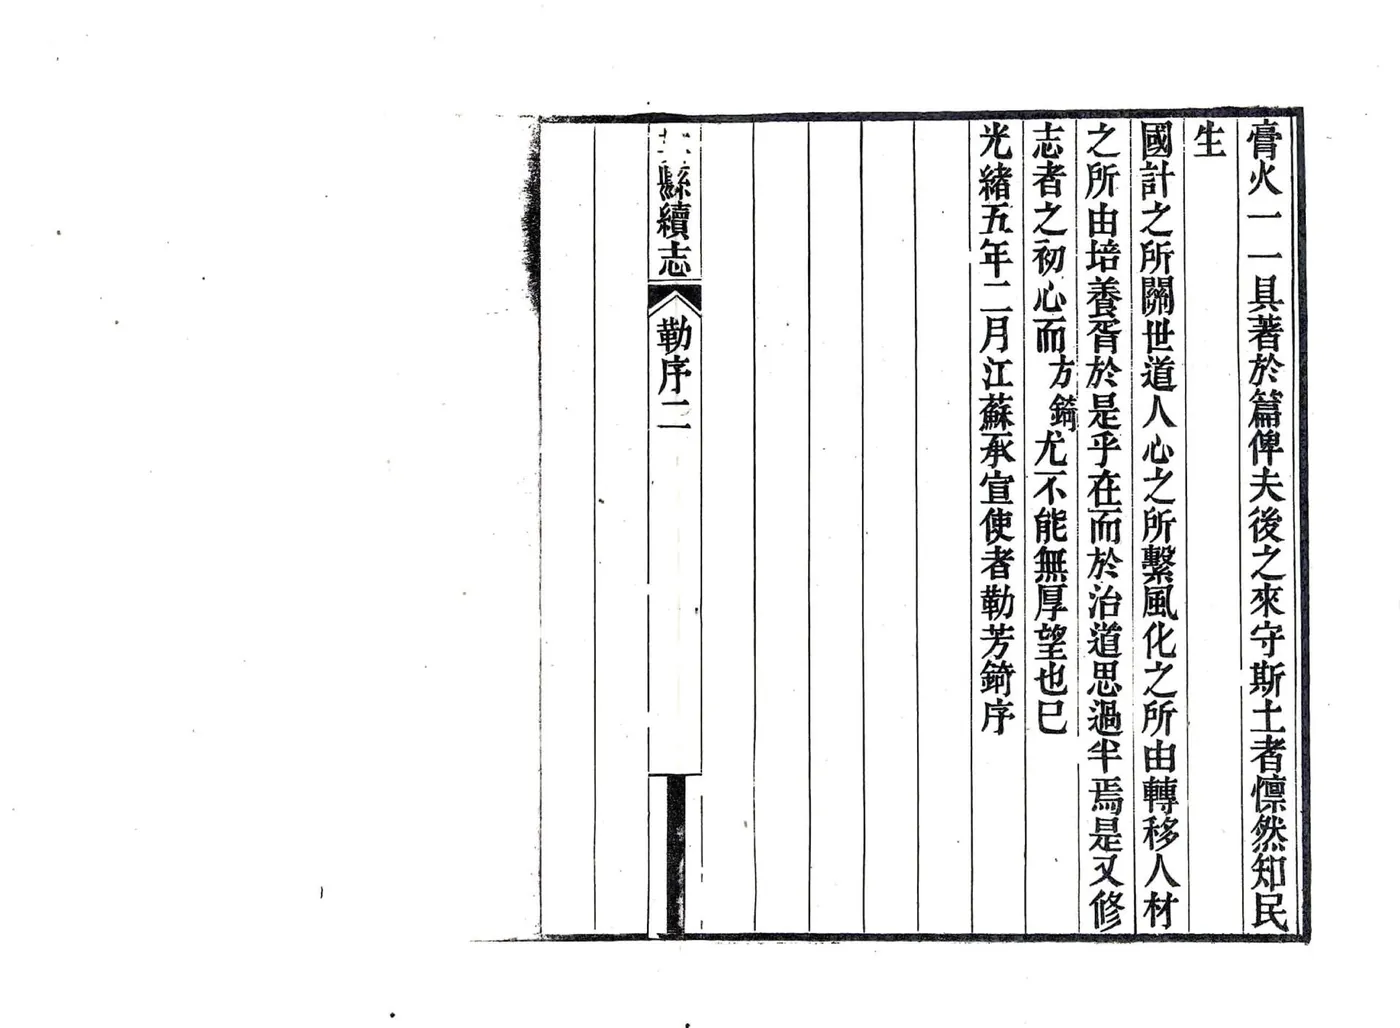 膏火一一具著於篇俾夫後之來守斯土者懍然知民
生
國計之所關世道人心之所繫風化之所由轉移人材
之所由培養胥於是乎在而於治道思過半焉是又修
志者之初心而方錡尤不能無厚望也已
光緒五年二月江蘇承宣使者勒芳錡序
縣續志
勒序二